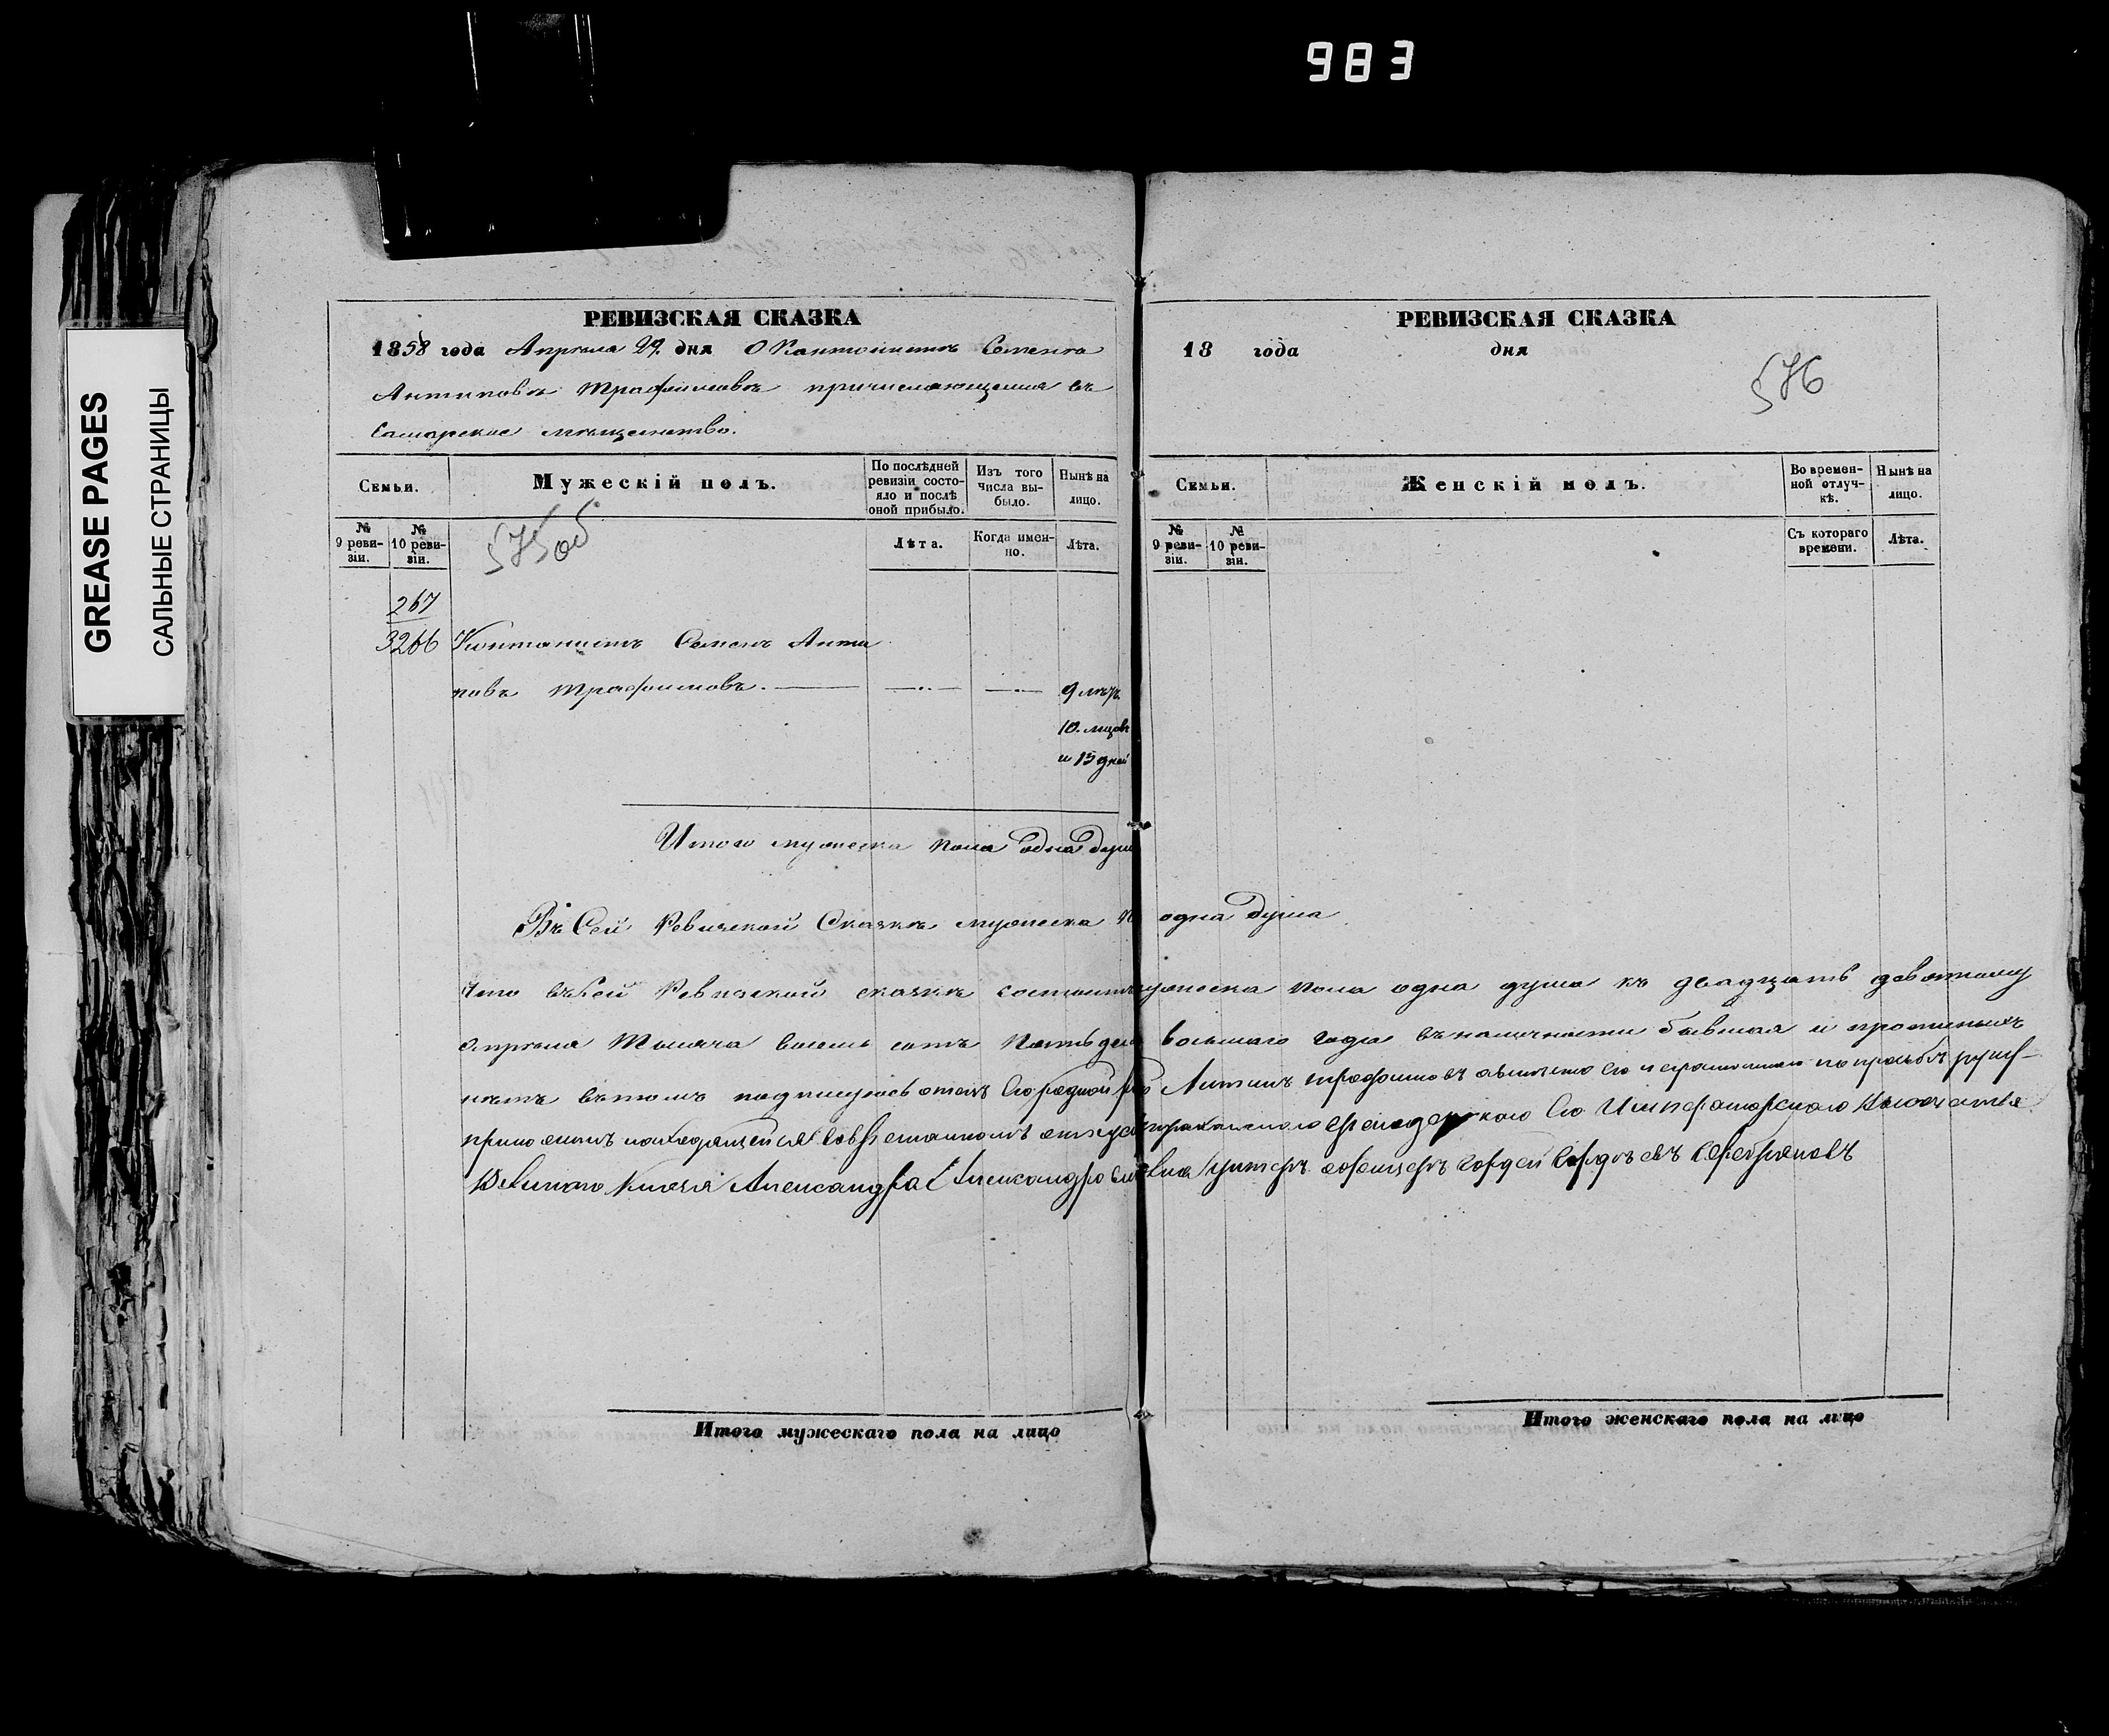 983
GREASE PAGES
САЛЬНЫЕ СТРАНИЦЫ
РЕВИЗСКАЯ СКАЗКА
1858 года Апреля 29. дня О Кантонисте Семене
Антипове Трафимове причисляющемся въ
Самарское мещанство.
Семьи.
Мужескій полъ.
По послѣдней ревизіи состояло и послѣ оной прибыло.
Изъ того числа выбыло.
Нынѣ на лицо.
№ 9 ревизіи.
№ 10 ревизіи.
575 об
Лѣта.
Когда именно.
Лѣта.
267
3266 Контонистъ Семенъ Анти
повъ Трафимовъ. 9 летъ
10. мцовъ
и 15 дней
Итого мужеска пола одна душа
Въ Сей Ревизской Сказке мужеска п одна душа
Что въ сей Ревизской сказке состоитъ мужеска пола одна душа къ двадцать девятому
апреля Тысяча восемь сотъ восьмаго года въ наличности бывшая и прописныхъ
нетъ въ томъ подписуюсь отецъ Его родной Антипъ Трафимовъ а вместо его неграмотнаго по прозьбе руку
Его Императорскаго Высочества
Великаго Князя Александра Александровича унтеръ офицеръ Гордей Серебряковъ
Итого мужескаго пола на лицо
РЕВИЗСКАЯ СКАЗКА
18 года дня
576
Семьи.
Женскій полъ.
Во временной отлучкѣ.
Нынѣ на лицо.
№ 9 ревизіи.
№ 10 ревизіи.
Съ котораго времени.
Лѣта.
Итого женскаго пола на лицо